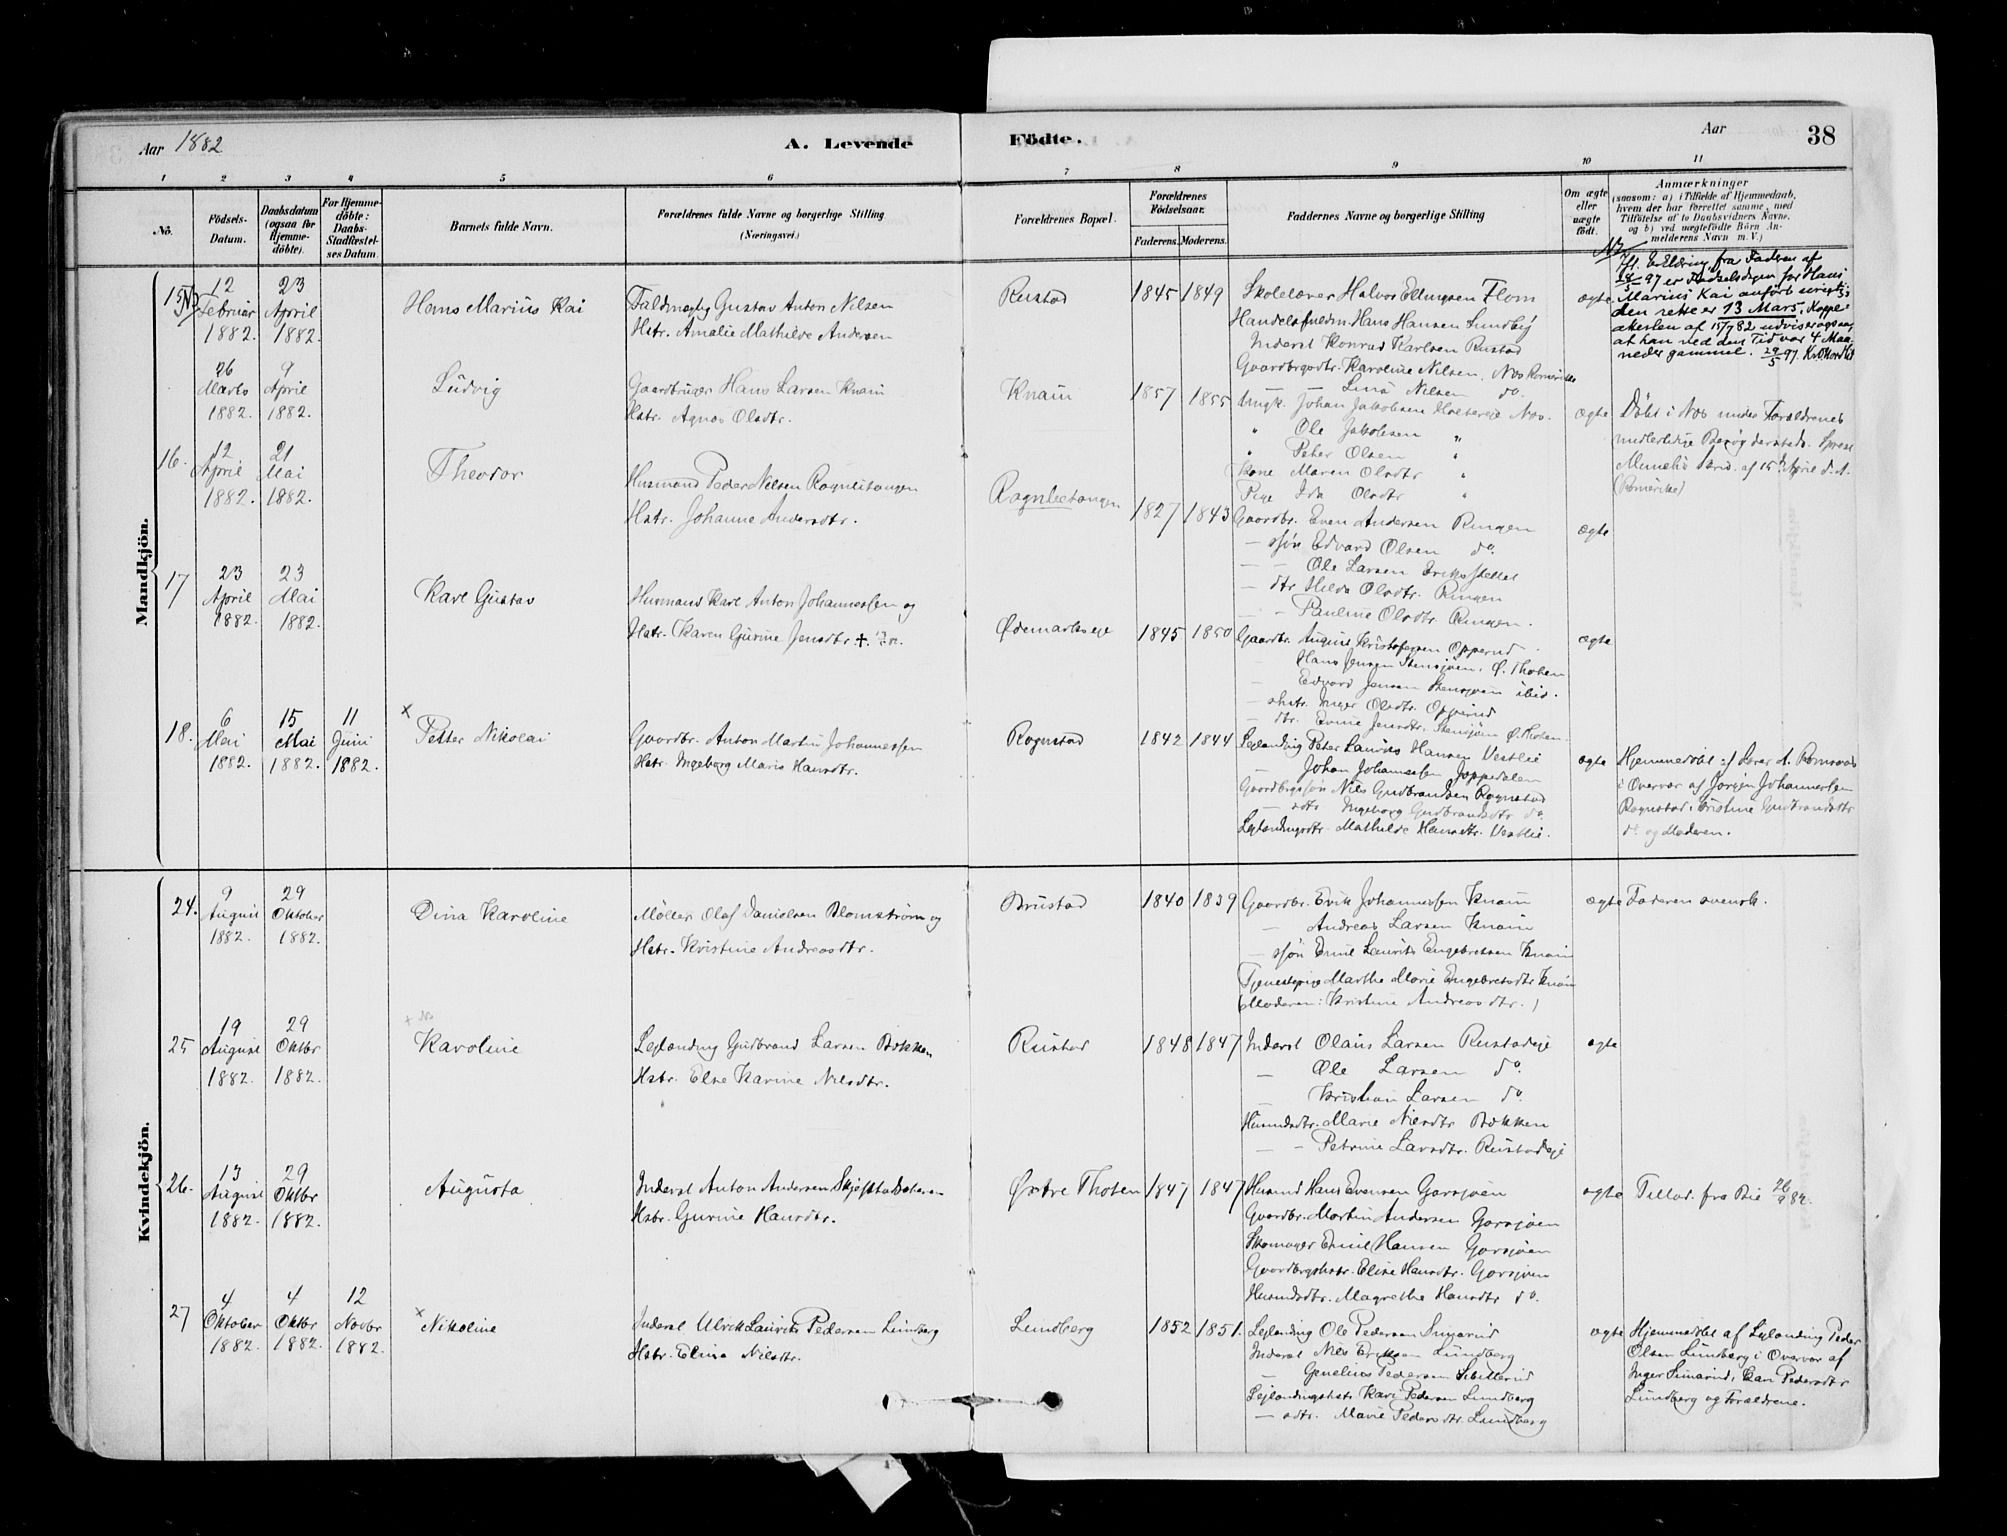 Aar 1882
A. Levende
Födte.
Aar
38
1 2 3 4 5 6 7 8 9 10 11
No.
Födsels-Datum.
Daabsdatum (ogsaa for Hjemme-döbte).
For Hjemme-döbte: Daabs-Stadfæstel-ses Datum.
Barnets fulde Navn.
Forældrenes fulde Navne og borgerlige Stilling
(Næringsvei.)
Forældrenes Bopæl.
Forældrenes Födselsaar.
Faderens. Moderens.
Faddernes Navne og borgerlige Stilling
Om ægte eller uægte födt.
Anmærkninger
(saasom: a) i Tilfælde af Hjemmedaab,
hvem der har forrettet samme, med
Tilföielse af to Daabsvidners Navne,
og b) ved uægtefödte Börn An-
melderens Navn m. V.)
Mandkjön.
15
12 Februar 1882.
23 April 1882.
Hans Marius Kai
Gustav Anton Nilsen
Hstr. Amalie Mathilde Andersen
Rustad
1845 1849
Skolelærer Halvor Ellingsen Flom
Hans Hansen Sundby
Inderst Konrad Karlsen Rustad
Karoline Nilsen, Nes Romerike
— Lina Nilsen do.
ægte
Erklæring fra Faderen af
er Födselsdagen for Hans
Marius Kai anfört urigtig;
den rette er 13 Mars. Koppe-
attesten af 15/7 82 udviser ogsaa,
at han ved den Tid var 4 Maa-
neder gammel. 29/5 97.
26 Marts 1882.
9 April 1882.
Ludvig
Gaardbruger Hans Larsen Knain
Hstr. Agnes Olsdtr.
Knain
1857 1855
Ungk. Johan Jakobsen Nes.
" Ole Jakobsen "
" Peter Olsen "
Kone Maren Olsdtr "
Pige Ida Olsdtr "
ægte
Döbt i Nes under Forældrenes
midlertidige Besög dersteds.
af 15 April d. A.
(Romerike)
16.
12 April 1882.
21 Mai 1882.
Theodor
Husmand Peder Nilsen Rognlitangen
Hstr. Johanne Andersdtr.
Rognlietangen
1827 1843
Gaardbr. Even Andersen Ringen
— sön Edvard Olsen do.
— Ole Larsen
— dtr Hilda Olsdtr. Ringen
— Pauline Olsdtr Ringen.
ægte
17
23 April 1882.
23 Mai 1882.
Karl Gustav
Husmand Karl Anton Johannessen og
Hstr. Karen Gurine Jensdtr. +
Ødemarkseje
1845 1850
Gaardbr. August Kristofersen Opperud
— Hans Jensen Stensjöen, Ø. Thoten
— Edvard Jensen Stensjöen ibid.
— Inger Olsdtr. Opperud
— dtr. Evine Jensdtr. Stensjöen Ø. Thoten.
ægte
18.
6 Mai 1882.
15 Mai 1882.
11 Juni 1882.
x Petter Nikolai
Gaardbr. Anton Martin Johannessen
Hstr. Ingeborg Marie Hansdtr.
Rognstad
1842 1844
Leilænding Peter Laurits Hansen Vestlie
— Johan Johannessen Joppedalen
Gaardbrgssön Nils Gudbrandsen Rognstad
— sdtr Ingeborg Gudbrandsdtr do.
Leilændingsdtr. Mathilde Hansdtr. Vestlie.
ægte
Hjemmedöbt af Lærer A. Romsaas
i Overvær af Jörgen Johannessen
Rognstad, Kristine Gudbrandsdtr
do og Moderen.
Kvindekjön.
24.
9 August 1882.
29 Oktober 1882.
Dina Karoline
Möller Olof Danielsen Blomström og
Hstr. Kristine Andreasdtr.
Brustad
1840 1839
Gaardbr. Erik Johannessen Knain
— Andreas Larsen Knain
— sön Emil Laurits Engebretsen Knain
Tjenestepige Marthe Marie Engebretsdtr Knain
(Moderen: Kristine Andreasdtr.)
ægte
Faderen svensk.
25
19 August 1882.
29 Oktbr 1882.
Karoline
Leilænding Gudbrand Larsen Bakken
Hstr. Else Karine Nilsdtr.
Rustad
1848 1847
Inderst Olaus Larsen Rustadeje
— Ole Larsen do.
— Kristian Larsen do.
Husmdsdtr. Marie Nilsdtr Bakken
— Petrine Larsdtr. Rustadeje
ægte
26.
13 August 1882.
29 Oktbr 1882.
Augusta
Inderst Anton Andersen
Hstr. Gurine Hansdtr.
Østre Thoten
1847 1847
Husmd Hans Evensen Garsjöen
Gaardbr. Martin Andersen Garsjöen
Skomager Emil Hansen Garsjöen
Gaardbrgshstr. Elise Hansdtr. Garsjöen
Husmdsdtr. Magrethe Hansdtr do.
ægte
26/9 82.
27
4 Oktober 1882.
4 Oktbr 1882.
12 Novbr 1882.
x Nikoline
Inderst Ulrik Laurits Pedersen Lundberg
Hstr. Elina Nilsdtr.
Lundberg
1852 1851.
Leilænding Ole Pedersen Simarud
Inderst Nils Eriksen Lundberg
— Genelius Pedersen
Leilændingshstr Kari Pedersen Lundberg
— sdtr. Marie Pedersdtr. Lundberg
ægte
Hjemmedöbt af Leilænding Peder
Olsen Lundberg i Overvær af
Inger Simarud, Kari Pedersdtr
Lundberg og Forældrene.